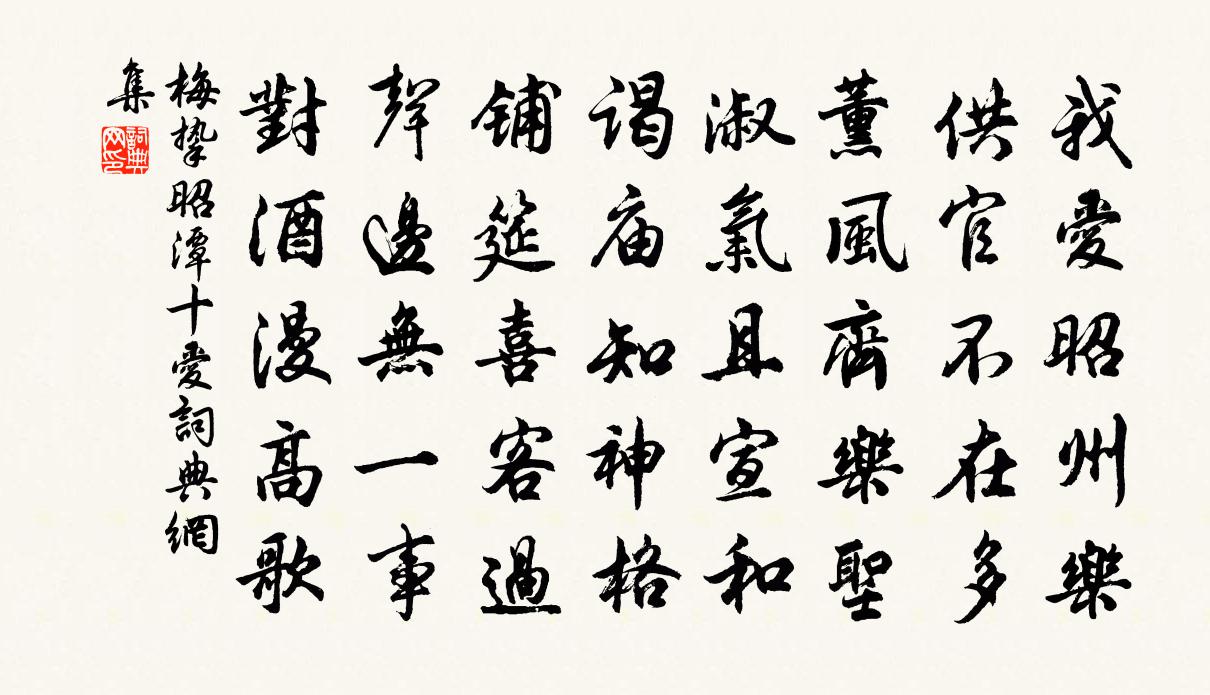 我愛昭州樂
供官不在多
薰風齊樂聖
淑氣且宣和
谒庙知神格
鋪筵喜客過
聲邊無一事
對酒漫高歌
梅挚昭潭十愛詞典網
集
詞典
网印